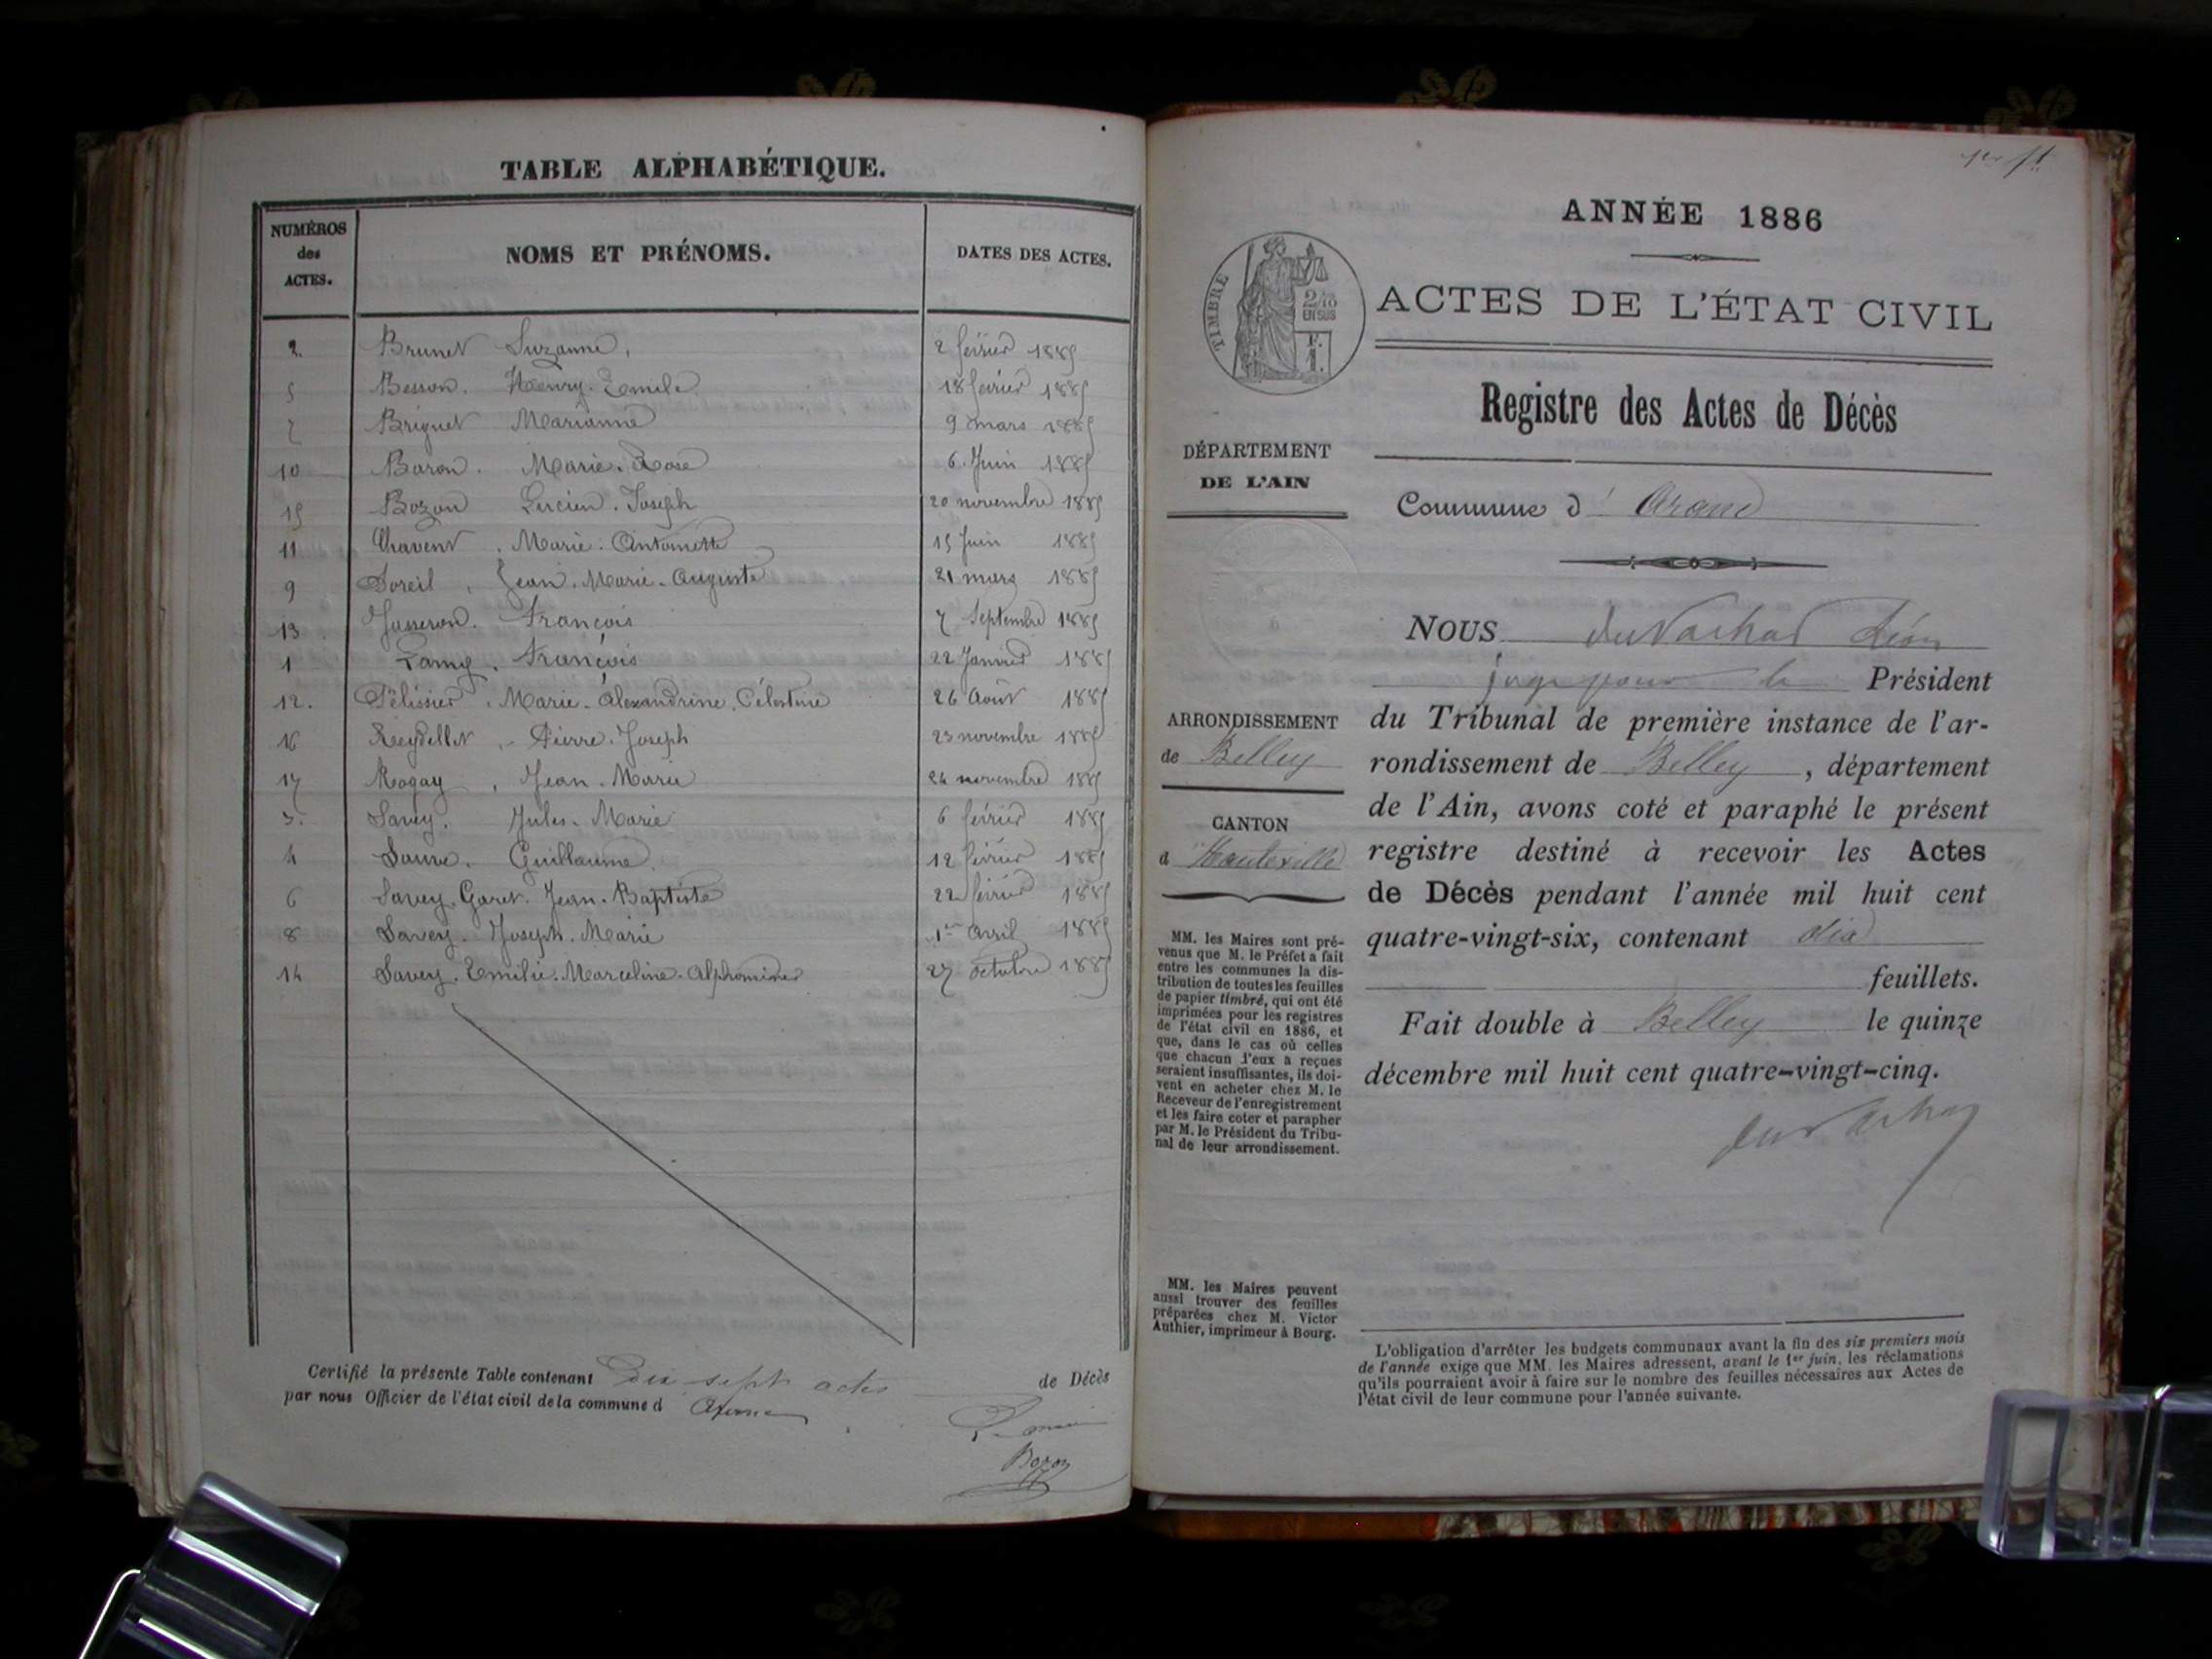 TABLE ALPHABÉTIQUE.
NUMÉROS des ACTES. NOMS ET PRÉNOMS. DATES DES ACTES.
2. Brunet Suzanne, 2 février 1885
5 Besson. Henry. Emile. 18 février 1885
7 Briguet Marianne 9 mars 1885
10 Baron. Marie. Rose 6. Juin 1885
15 Bozon Lucien. Joseph 20 novembre 1885
11 Chavent. Marie. Antoinette 15 Juin 1885
9 Soreil, Jean. Marie. Auguste 21 mars 1885
13 Jusseron. François 7 Septembre 1885
1 Lamy. François 22 Janvier 1885
12. Pélissier. Marie. Alexandrine. Célestine 26 Août 1885
16 Reydellet, Pierre. Joseph 23 novembre 1885
17 Rogay, Jean. Marie 24 novembre 1885
3. Savey. Jules. Marie 6 février 1885
4 Guillaume. 12 février 1885
6 Savey. Garet. Jean. Baptiste 22 février 1885
8 Savey. Joseph. Marie 1er Avril 1885
14 Savey. Emilie. Marceline. Alphonsine 27 octobre 1885
Certifié la présente Table contenant Dix sept actes de Décès
par nous Officier de l'état civil de la commune d
Bozon
1er ft
ANNÉE 1886
TIMBRE
2/10
EN SUS
F.
1.
ACTES DE L'ÉTAT CIVIL
Registre des Actes de Décès
DÉPARTEMENT
DE L'AIN
Commune d' Aranc
NOUS Léon
juge pour le Président
du Tribunal de première instance de l'ar-
rondissement de Belley, département
de l'Ain, avons coté et paraphé le présent
registre destiné à recevoir les Actes
de Décès pendant l'année mil huit cent
quatre-vingt-six, contenant dix
feuillets.
Fait double à Belley le quinze
décembre mil huit cent quatre-vingt-cinq.
ARRONDISSEMENT
de Belley
CANTON
d Hauteville
MM. les Maires sont pré-
venus que M. le Préfet a fait
entre les communes la dis-
tribution de toutes les feuilles
de papier timbré, qui ont été
imprimées pour les registres
de l'état civil en 1886, et
que, dans le cas où celles
que chacun d'eux a reçues
seraient insuffisantes, ils doi-
vent en acheter chez M. le
Receveur de l'enregistrement
et les faire coter et parapher
par M. le Président du Tribu-
nal de leur arrondissement.
MM. les Maires peuvent
aussi trouver des feuilles
préparées chez M. Victor
Authier, imprimeur à Bourg.
L'obligation d'arrêter les budgets communaux avant la fin des six premiers mois
de l'année exige que MM. les Maires adressent, avant le 1er juin, les réclamations
qu'ils pourraient avoir à faire sur le nombre des feuilles nécessaires aux Actes de
l'état civil de leur commune pour l'année suivante.